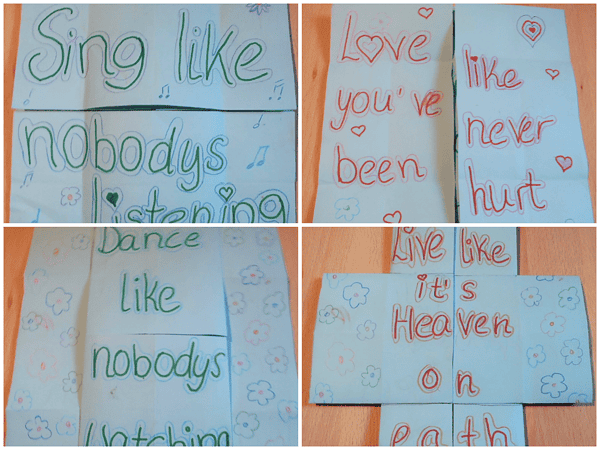 Sing like
nobodys
listening
Love
you've
been
like
never
hurt
Dance
like
nobodys
Watching
Live like
it's
Heaven
on
eath